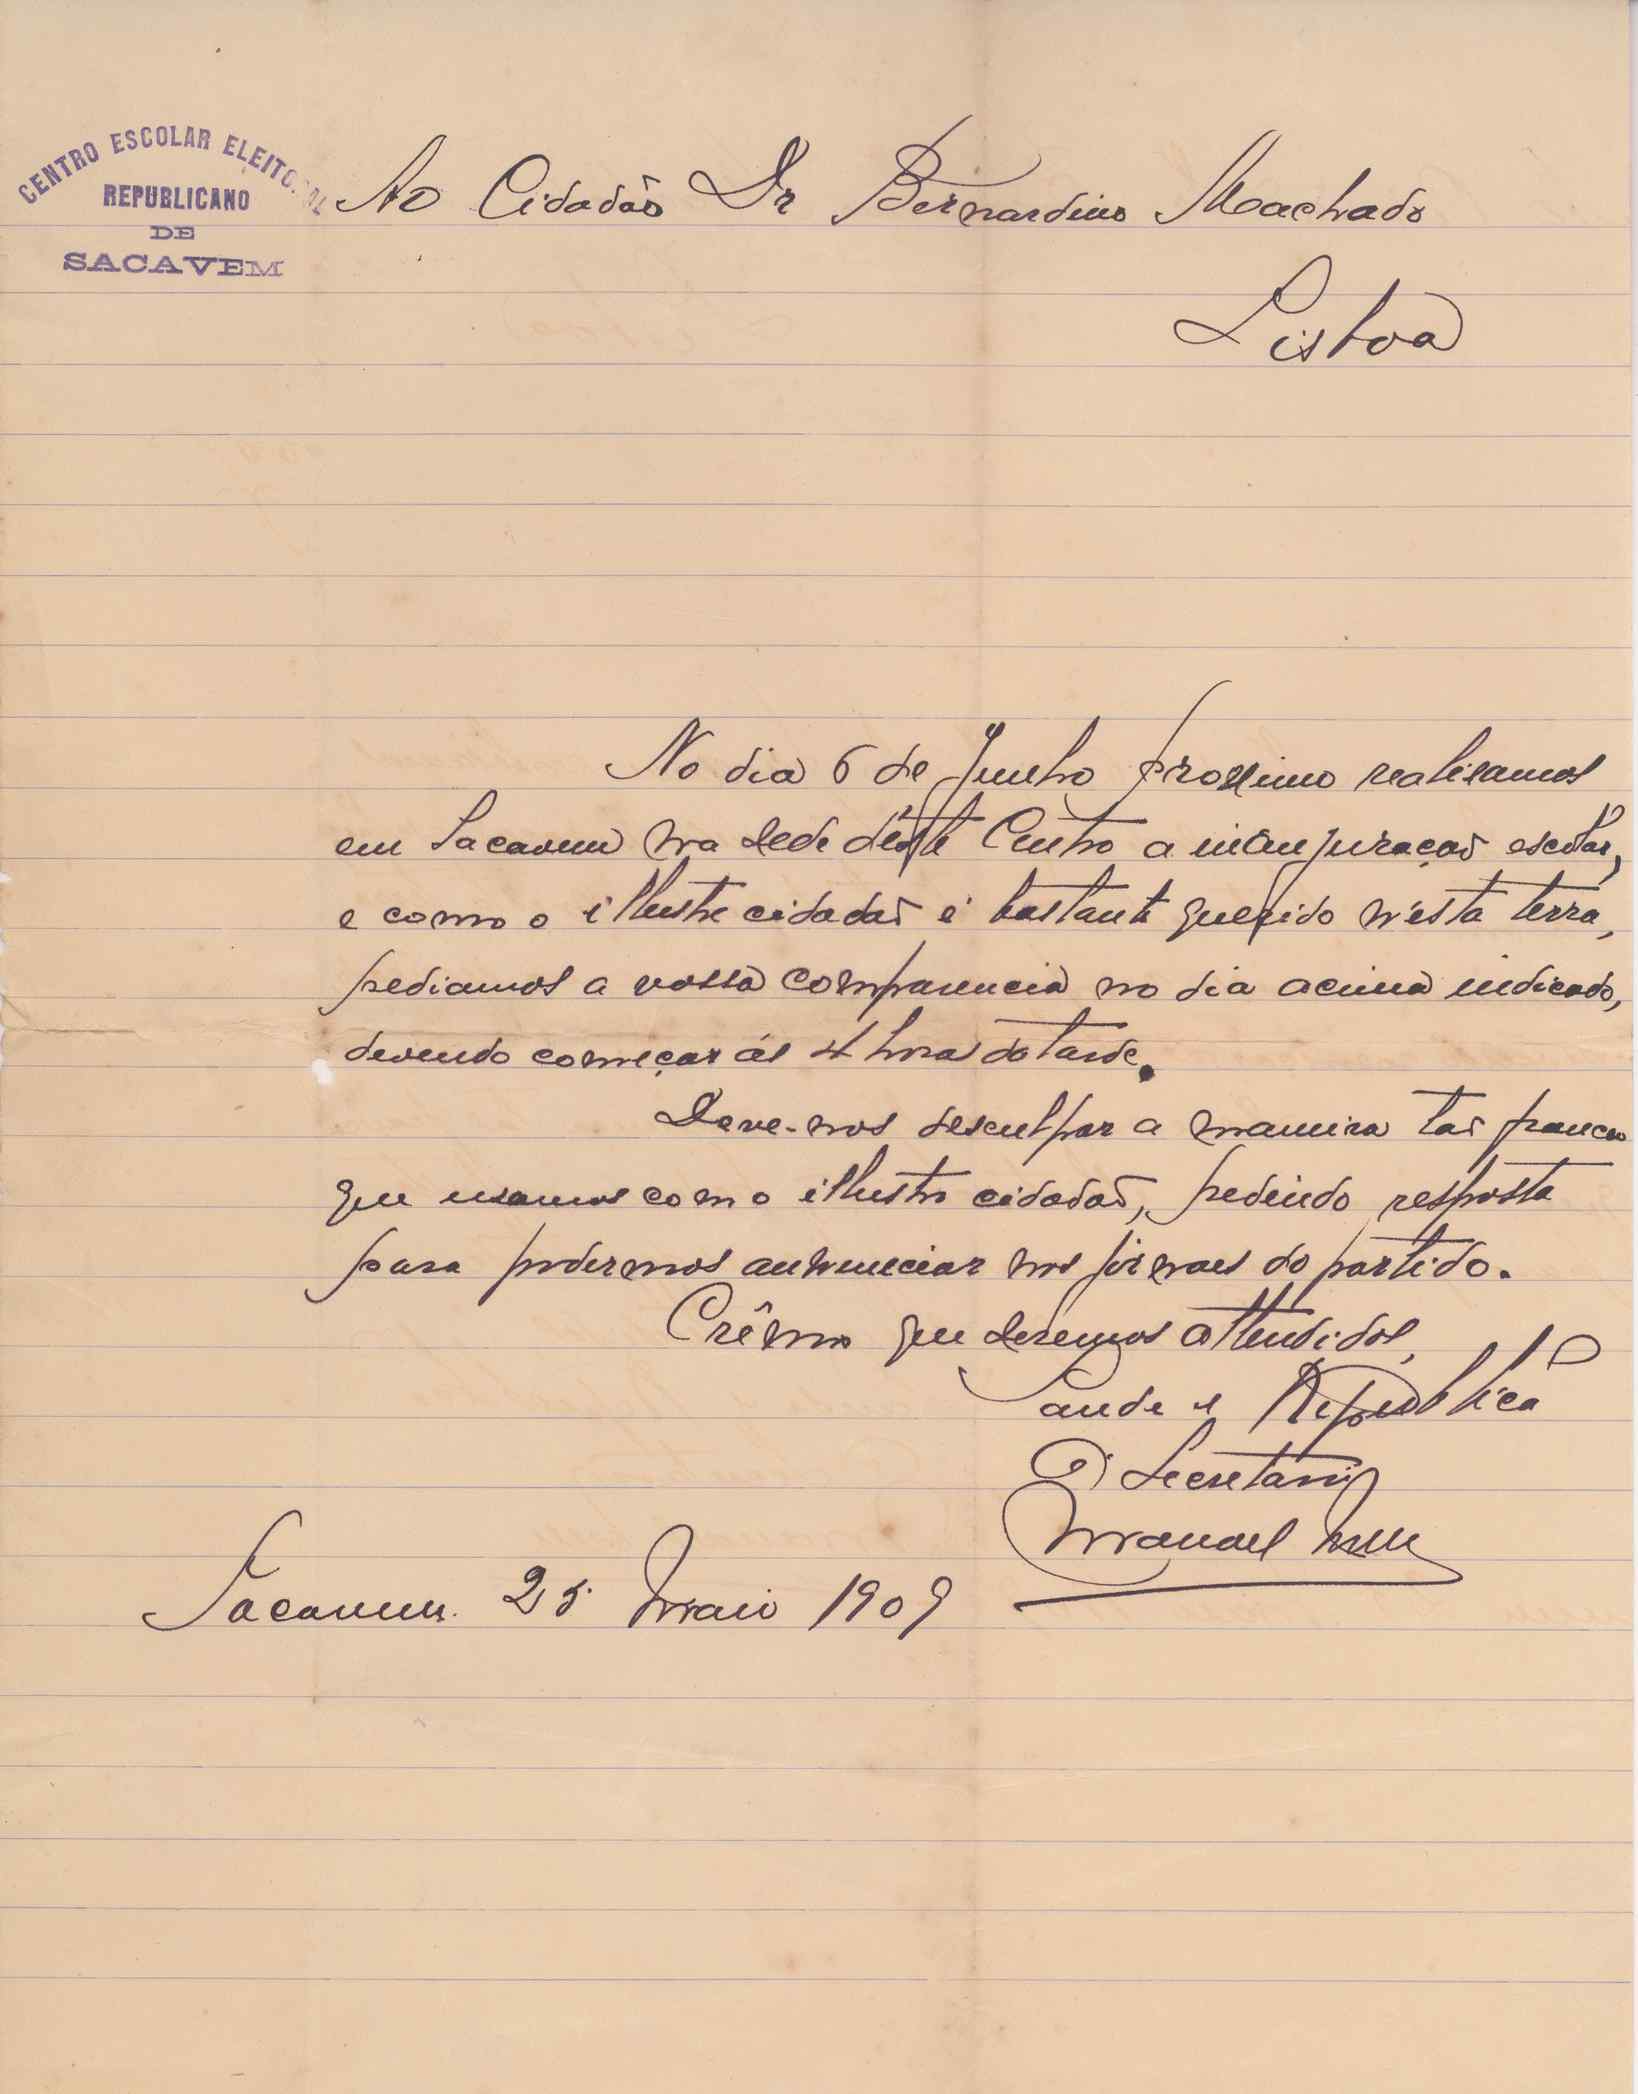 CENTRO ESCOLAR ELEITORAL
REPUBLICANO
DE
SACAVEM
Ao Cidadão Dr Bernardino Machado
Lisboa
No dia 6 de Junho proximo realisamos
em Sacavem na séde déste Centro a inauguração escolar,
e como o illustre cidadão é bastante querido n'esta terra,
pediamos a vossa comparencia no dia acima indicado,
devendo começar ás 4 hora da tarde.
Deve-nos desculpar a maneira tão franca
que usamos com o illustre cidadão, pedindo resposta
para podermos annunciar nos jornaes do partido.
Crêmo que seremos attendidos,
Saude e Republica
O Secretario
Manoel
Sacavem. 25 Maio 1909